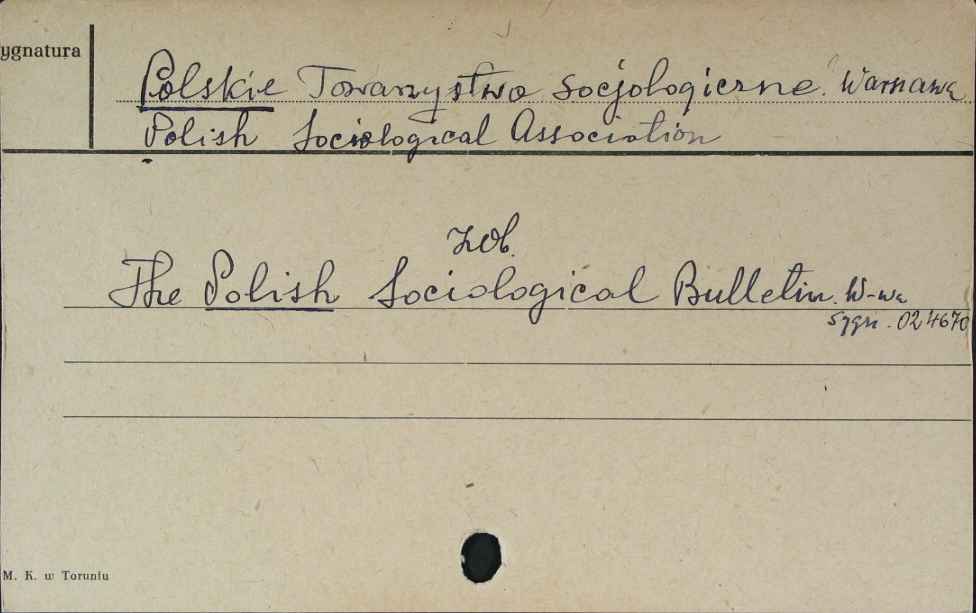 ygnatura
Polskie Towarzystwo Socjologiczne. Warszawa
Polish Sociological Association
zob.
The Polish Sociological Bulletin. W-wa
Sygn. 024670
M. K. w Toruniu